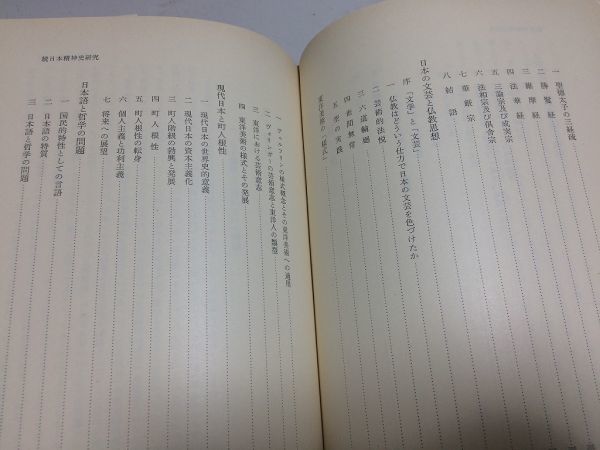 一 聖徳太子の三経疏
二 勝鬘経
三 維摩経
四 法華経
五 三論宗及び成実宗
六 法相宗及び倶舎宗
七 華厳宗
八 結語
日本の文芸と仏教思想
序 「文学」と「文芸」
一 仏教はどういう仕方で日本の文芸を色づけたか
二 芸術的法悦
三 六道輪廻
四 世間無常
五 愛の実践
東洋美術の「様式」
続日本精神史研究
一 ヴェルフリンの様式概念とその東洋美術への適用
二 ヴォリンガーの芸術意志と東洋人の類型
三 東洋における芸術意志
四 東洋美術の様式とその発展
現代日本と町人根性
一 現代日本の世界史的意義
二 現代日本の資本主義化
三 町人階級の勃興と発展
四 町人根性
五 町人根性の転身
六 個人主義と功利主義
七 将来への展望
日本語と哲学の問題
一 国民的特性としての言語
二 日本語の特質
三 日本語と哲学の問題